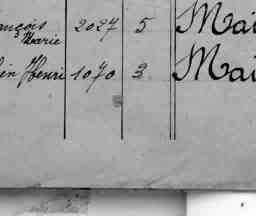 François 2027 5 Mai
Marie
in Henri 1070 3 Mai